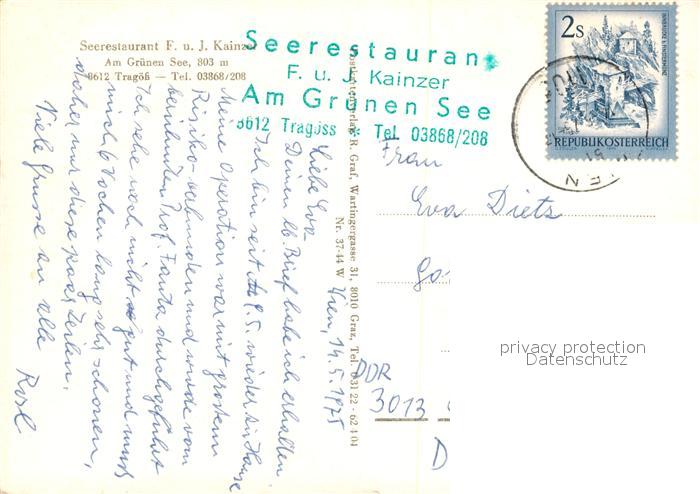 Seerestaurant F. u. J. Kainzer
Am Grünen See, 803 m
8612 Tragöß — Tel. 03868/208
Seerestaurant
F. u. J. Kainzer
Am Grünen See
8612 Tragöss Tel 03868/208
2s
REPUBLIK ÖSTERREICH
WIEN
Wien, 14.5.1975
Liebe Eva
Deinen lb. Brief habe ich erhalten
Ich bin seit 9.5. wieder zu Hause
Meine Operation war mit grossem
Risiko verbunden und wurde vom
Prof. Fanta durchgeführt
Ich sehe noch nicht gut und muss
mich 6 Wochen lang sehr schonen,
daher nur diese paar Zeilen.
Viele Grüsse an alle
Rosl
Postkartenverlag R. Graf, Wartingergasse 31, 8010 Graz, Tel. 0 31 22 - 62 4 04
Nr. 37-44 W
Frau
Eva Dietz
Go
DDR
3013
D
privacy protection
Datenschutz